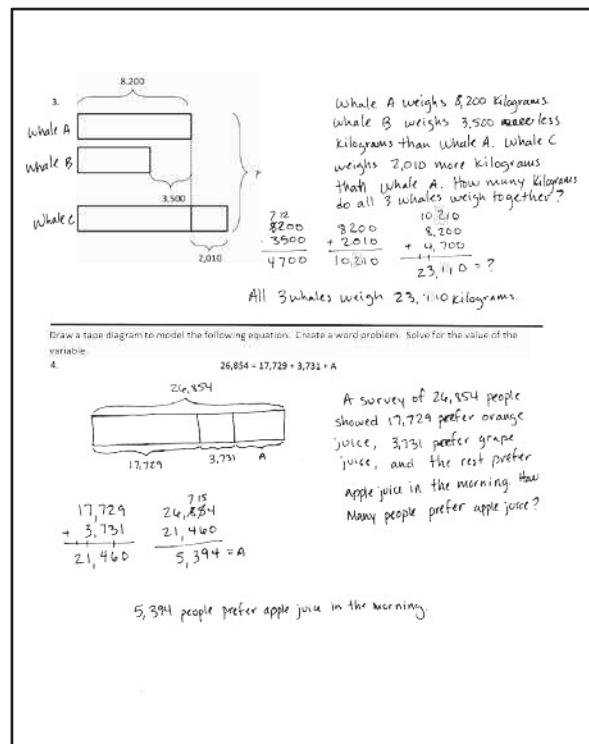 8,200
3.
Whale A
Whale B
3,500
Whale C
2,010
?
Whale A weighs 8,200 kilograms.
Whale B weighs 3,500 less
kilograms than Whale A. Whale C
weighs 2,010 more kilograms
than Whale A. How many kilograms
do all 3 whales weigh together?
7 12
8200
- 3500
4700
8200
+ 2010
10,210
10,210
8,200
+ 4,700
23,110 = ?
All 3 whales weigh 23,110 kilograms.
Draw a tape diagram to model the following equation. Create a word problem. Solve for the value of the
variable.
4.
26,854 = 17,729 + 3,731 + A
26,854
17,729
3,731
A
A survey of 26,854 people
showed 17,729 prefer orange
juice, 3,731 prefer grape
juice, and the rest prefer
apple juice in the morning. How
Many people prefer apple juice?
17,729
+ 3,731
21,460
7 15
26,854
21,460
5,394 = A
5,394 people prefer apple juice in the morning.